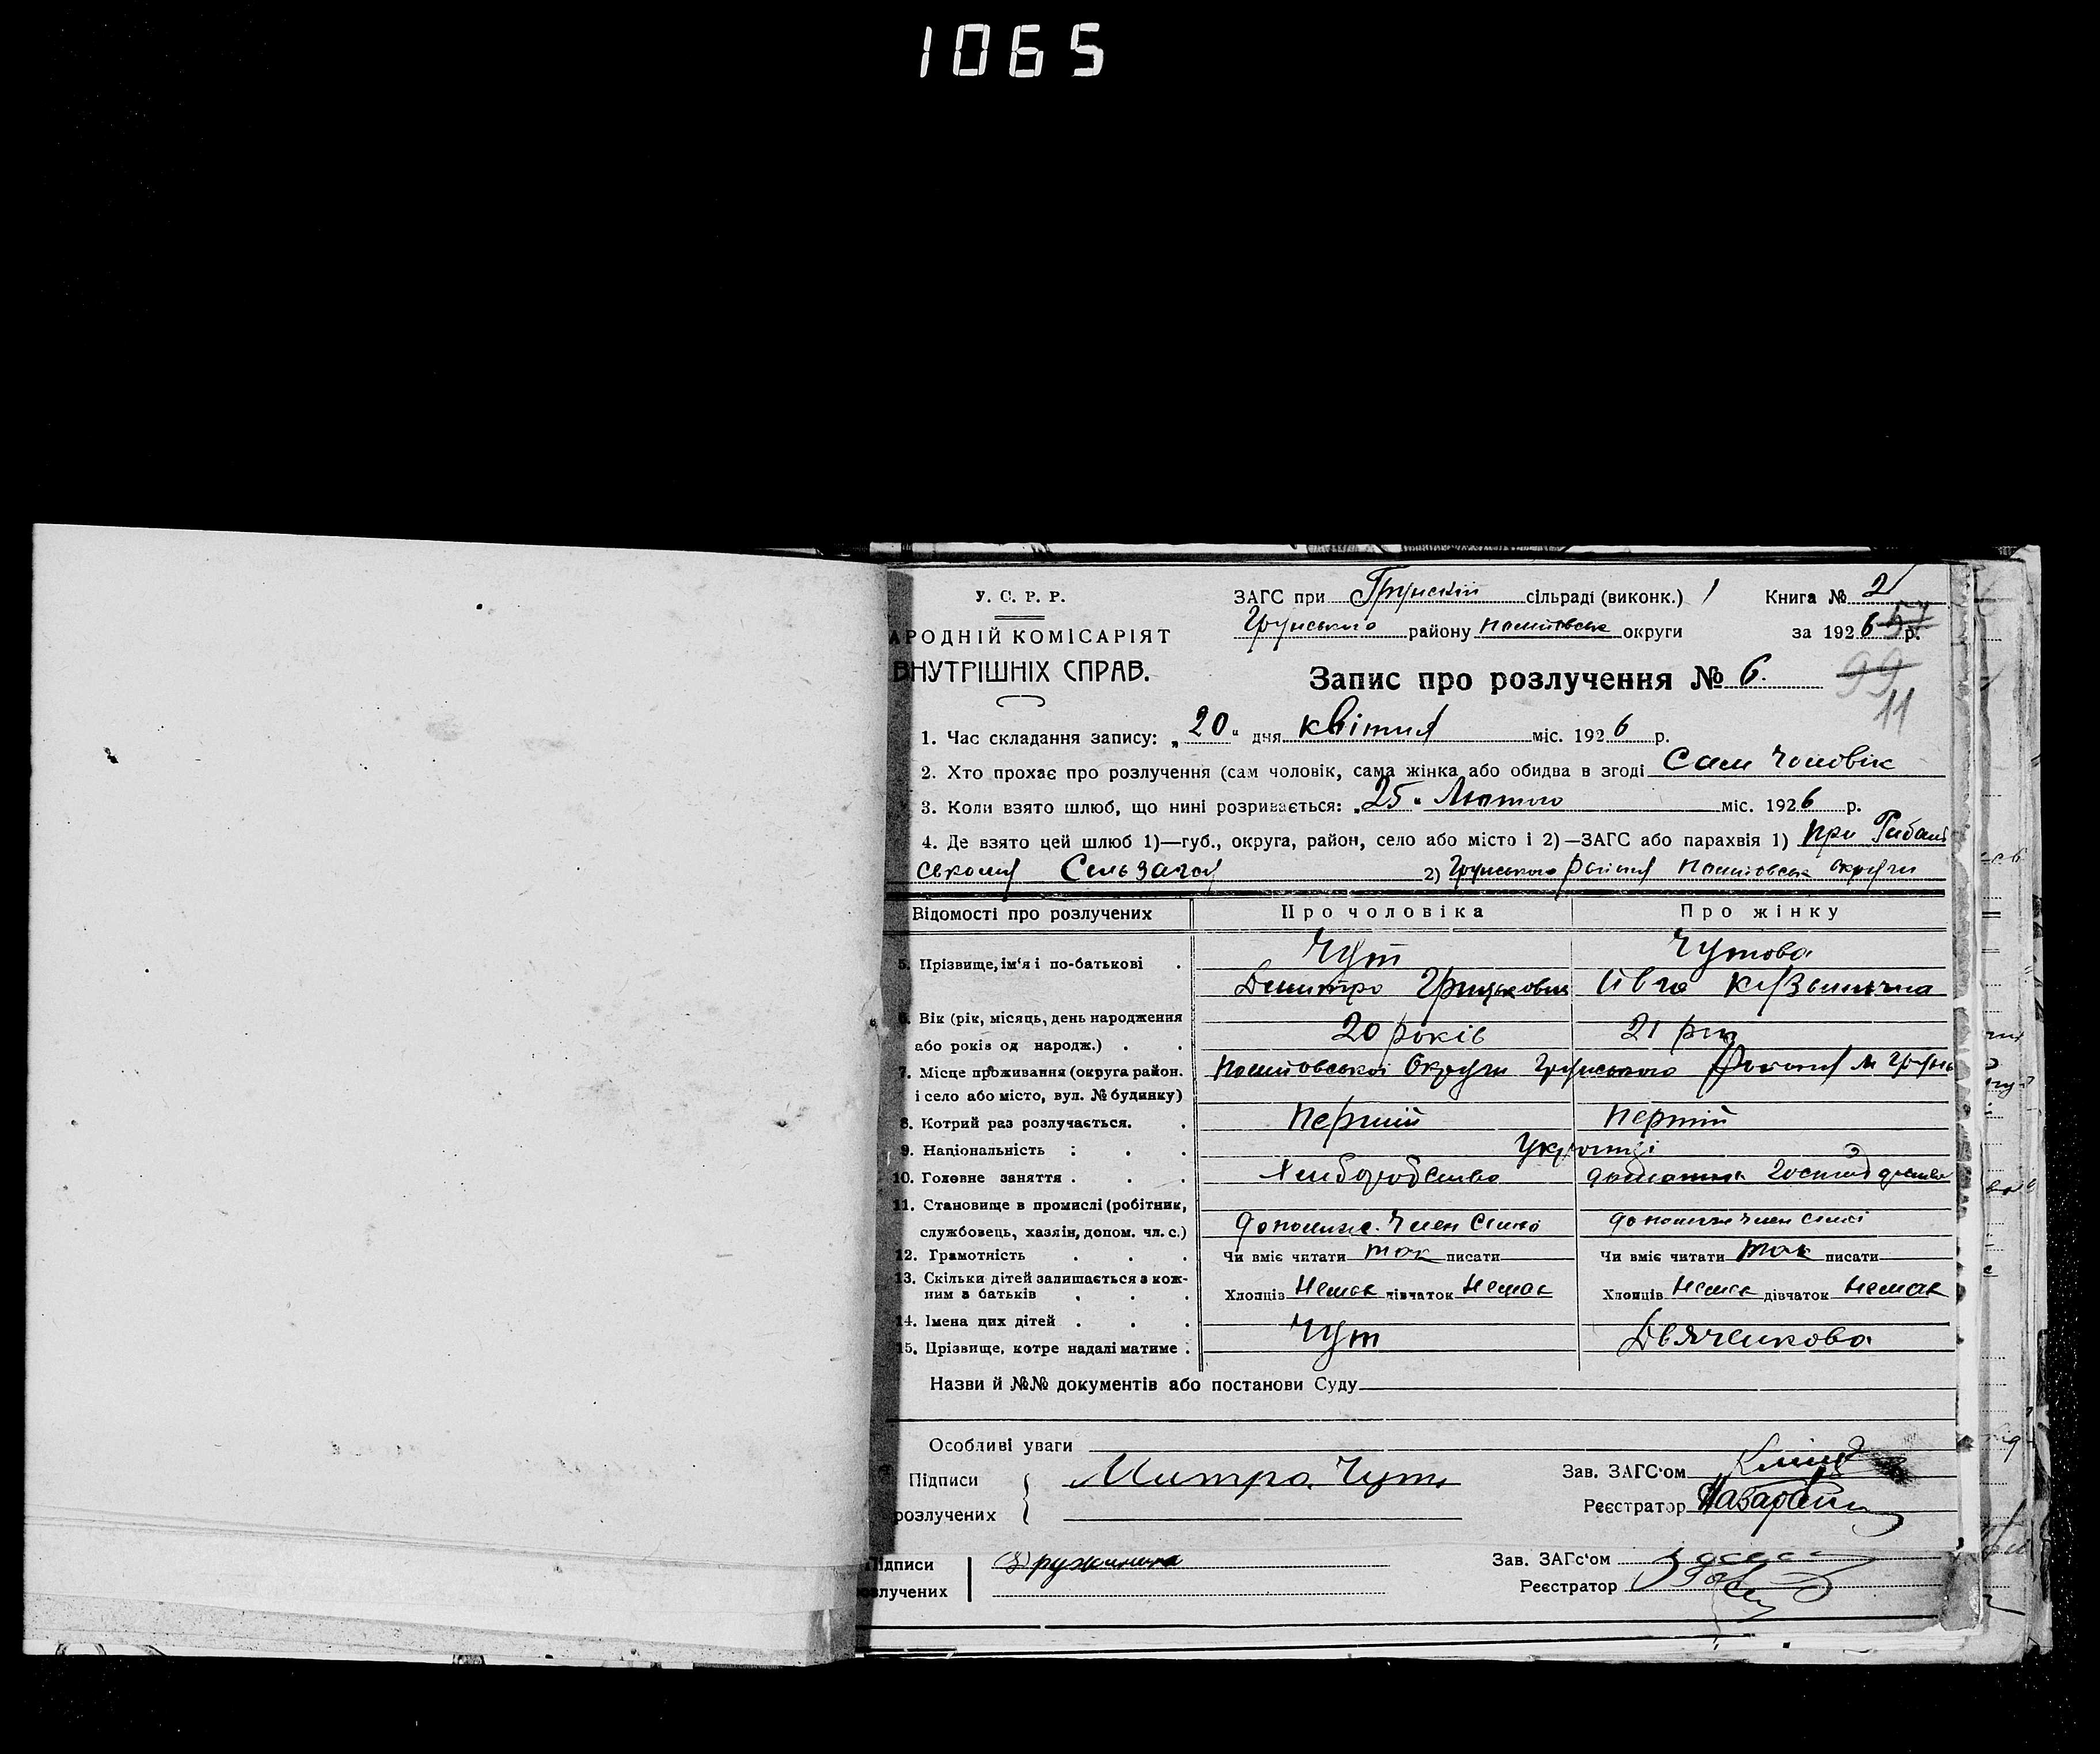 1065
У. С. Р. Р.
АРОДНІЙ КОМІСАРІЯТ
ВНУТРІШНІХ СПРАВ.
ЗАГС при Грунский сільраді (виконк.) 1 Книга № 2
Грунського району округи за 1926 р. 57
Запис про розлучення № 6.
99
11
1. Час складання запису: „20“ дня квітня міс. 1926 р.
2. Хто прохає про розлучення (сам чоловік, сама жінка або обидва в згоді Сам Чоловік
3. Коли взято шлюб, що нині розривається: „25“ Лютого міс. 1926 р.
4. Де взято цей шлюб 1)—губ., округа, район, село або місто і 2)—ЗАГС або парахвія 1) при
2) Грунського округи
Відомості про розлучених Про чоловіка Про жінку
5. Прізвище, ім'я і по-батькові Чут Чутова
Дмитро Грицькович Івга Кузьмична
6. Вік (рік, місяць, день народження
або років од народж.) 20 років 21 рік
7. Місце проживання (округа район. Округи Грунського м Грунь
і село або місто, вул. № будинку)
8. Котрий раз розлучається. Перший Перший
9. Національність Українці
10. Головне заняття Хлиборобство
11. Становище в промислі (робітник,
службовець, хазяін, допом. чл. с.) член член
12. Грамотність Чи вміє читати так писати Чи вміє читати так писати
13. Скільки дітей залишається з кож-
ним з батьків Хлопців Немає дівчаток Немає Хлопців Немає дівчаток Немає
14. Імена цих дітей
15. Прізвище, котре надалі матиме Чут Дьяченкова
Назви й №№ документів або постанови Суду
Особливі уваги
Підписи Митро Чут Зав. ЗАГС'ом
розлучених Реєстратор
Підписи Зав. ЗАГс'ом
озлучених Реєстратор